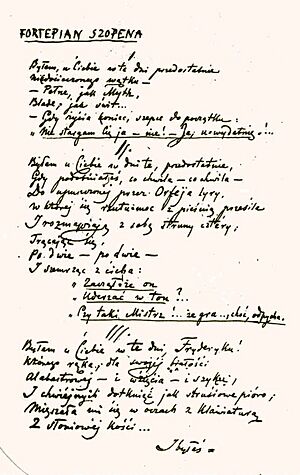 FORTEPIAN SZOPENA
I.
Byłem u Ciebie w te dni przedostatnie
Niedocieczonego wątku —
— Pełne, jak Myth,
Blade, jak świt...
— Gdy życia koniec, szepce do początku:
„Nie stargam Cię ja — nie! — Ja, uwydatnię!...
II.
Byłem u Ciebie w dni te, przedostatnie,
Gdy podobniałeś, co chwila — co chwila —
Do upuszczonej przez Orfeja liry,
W której się rzutu-moc z pieśnią przesila
I rozmawiają z sobą struny cztéry,
Trącając się,
Po dwie — po dwie —
I szemrząc z cicha:
„Zacząłże on
„Uderzać w ton?...
„Czy taki Mistrz!... że gra... choć, odpycha.
III.
Byłem u Ciebie w te dni, Fryderyku!
Którego ręka, dla swojéj białości
Alabastrowéj — i wzięcia — i szyku,
I chwiejnych dotknięć jak strusiowe pióro;
Mięszała mi się w oczach z klawiaturą
Z słoniowéj kości...
I byłeś =